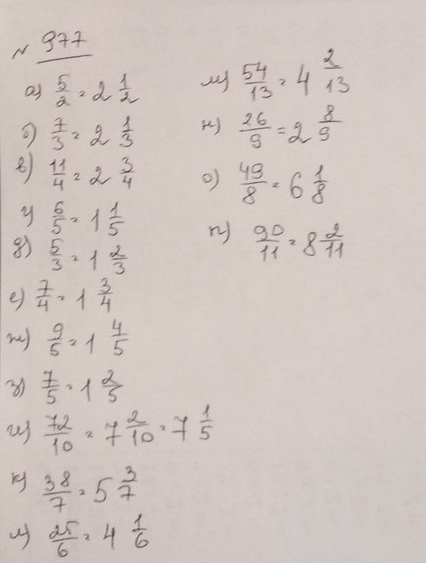 № 977
а) 5/2 = 2 1/2
б) 7/3 = 2 1/3
в) 11/4 = 2 3/4
г) 6/5 = 1 1/5
д) 5/3 = 1 2/3
е) 7/4 = 1 3/4
ж) 9/5 = 1 4/5
з) 7/5 = 1 2/5
и) 72/10 = 7 2/10 = 7 1/5
к) 38/7 = 5 3/7
л) 25/6 = 4 1/6
м) 54/13 = 4 2/13
н) 26/9 = 2 8/9
о) 49/8 = 6 1/8
п) 90/11 = 8 2/11